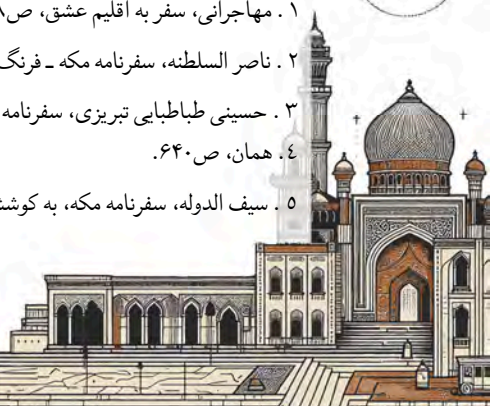 ١ . مهاجرانی، سفر به اقلیم عشق، ص
٢ . ناصر السلطنه، سفرنامه مکه ـ فرنگ
٣ . حسینی طباطبایی تبریزی، سفرنامه
٤ . همان، ص۶۴۰.
٥ . سیف الدوله، سفرنامه مکه، به